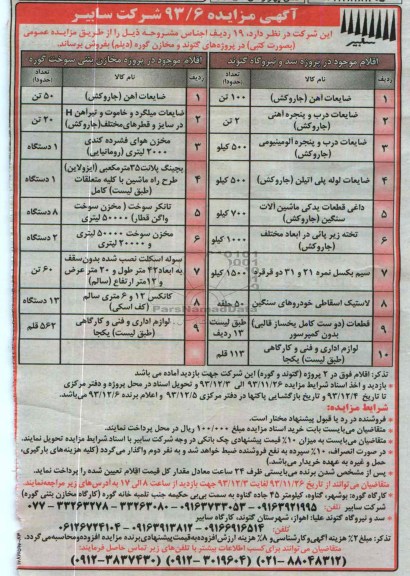 آگهی مزایده ۹۳/۶ شرکت سابیر
این شرکت در نظر دارد، ۱۹ ردیف اجناس مشروحه ذیل را از طریق مزایده عمومی
(بصورت کتبی) در پروژه‌های گتوند و مخازن گوره (دیلم) بفروش برساند.
سابیر
اقلام موجود در پروژه سد و نیروگاه گتوند
ردیف نام کالا تعداد (حدودا)
۱ ضایعات آهن (جاروکش) ۱۰۰ تن
۲ ضایعات درب و پنجره آهنی (جاروکش) ۲ تن
۳ ضایعات درب و پنجره آلومینیومی (جاروکش) ۵۰۰ کیلو
۴ ضایعات لوله پلی اتیلن (جاروکش) ۵۰۰ کیلو
۵ داغی قطعات یدکی ماشین آلات سنگین (جاروکش) ۷۰۰ کیلو
۶ تخته زیر پائی در ابعاد مختلف (جاروکش) ۱۰۰۰ کیلو
۷ سیم بکسل نمره ۲۱ و ۳۱ دو قرقره ۱۵۰۰ کیلو
۸ لاستیک اسقاطی خودروهای سنگین ۵۰ حلقه
۹ قطعات (دو ست کامل یخساز قالبی) بدون کمپرسور طبق لیست ۱۳ ردیف
۱۰ لوازم اداری و فنی و کارگاهی (طبق لیست) یکجا ۱۱۳ قلم
اقلام موجود در پروژه مخازن بتنی سوخت گوره
ردیف نام کالا تعداد (حدودا)
۱ ضایعات آهن (جاروکش) ۵۰ تن
۲ ضایعات میلگرد و خاموت و تیرآهن H در سایز و قطرهای مختلف (جاروکش) ۲۰ تن
۳ مخزن هوای فشرده کندی ۲۰۰۰ لیتری (رومانیایی) ۱ دستگاه
۴ بچینگ پلانت ۳۵ مترمکعبی (ایزولاین) طرح راه ماشین با کلیه متعلقات (طبق لیست) کامل ۱ دستگاه
۵ تانکر سوخت (مخزن سوخت واگن قطار) ۵۰۰۰۰ لیتری ۸ دستگاه
۶ مخزن سوخت ۵۰۰۰۰ لیتری و ۲۰۰۰۰ لیتری ۲ دستگاه
۷ سوله اسکلت نصب شده بدون سقف به ابعاد ۴۲ متر طول و ۲۰ متر عرض و ۱۲ متر ارتفاع (سالم) ۶۰ تن
۸ کانکس ۱۲ و ۶ متری سالم (کف اسکی) ۱۳ دستگاه
۹ لوازم اداری و فنی و کارگاهی (طبق لیست) یکجا ۵۶۲ قلم
ParsNamadData
تذکر: اقلام فوق در ۲ پروژه (گتوند و گوره) این شرکت جهت بازدید آماده می باشد
- بازدید و اخذ اسناد شرایط مزایده ۹۳/۱۱/۲۶ الی ۹۳/۱۲/۳ و تحویل اسناد در محل پروژه و دفتر مرکزی
تا تاریخ ۹۳/۱۲/۴ و تاریخ بازگشایی پاکتها در دفتر مرکزی ۹۳/۱۲/۵ و اعلام برنده ۹۳/۱۲/۶ می‌باشد.
شرایط مزایده:
- فروشنده در رد یا قبول پیشنهاد مختار است.
- متقاضیان می‌بایست بابت خرید اسناد مزایده مبلغ ۱۰۰/۰۰۰ ریال در محل پرداخت نمایند.
- متقاضیان می‌بایست به میزان ۱۰٪ قیمت پیشنهادی چک بانکی در وجه شرکت سابیر با اسناد شرایط مزایده تحویل نمایند.
- در صورت انصراف، ۱۰٪ سپرده به نفع فروشنده ضبط خواهد شد و به نفر دوم واگذار می‌گردد (کلیه هزینه‌های بارگیری، حمل و غیره به عهده خریدار می‌باشد).
- پس از مشخص شدن برنده می‌بایستی ظرف ۲۴ ساعت معادل مقدار کل قیمت اقلام تعیین شده را پرداخت نماید.
متقاضیان می‌توانند از تاریخ ۹۳/۱۱/۲۶ لغایت ۹۳/۱۲/۳ جهت بازدید از ساعت ۸ الی ۱۷ به آدرس‌های زیر مراجعه نمایند.
کارگاه گوره: بوشهر، گناوه، کیلومتر ۴۵ جاده گناوه به سمت بی‌بی حکیمه جنب تلمبه خانه گوره (کارگاه مخازن بتنی گوره)
شرکت سابیر
سد و نیروگاه گتوند علیا: اهواز، شهرستان گتوند، کارگاه سابیر
تذکر: مبلغ ۲٪ هزینه آگهی و کارشناسی و ۸٪ هزینه ارزش افزوده به قیمت پیشنهادی برنده مزایده افزوده و محاسبه می‌گردد.
متقاضیان می‌توانند برای کسب اطلاعات بیشتر با تلفن‌های زیر تماس حاصل فرمایند:
(۰۲۱-۸۸۰۴۸۳۱۲) (۰۹۱۲-۳۰۱۹۶۰۴) (۰۹۱۲-۳۸۳۷۴۳۰)